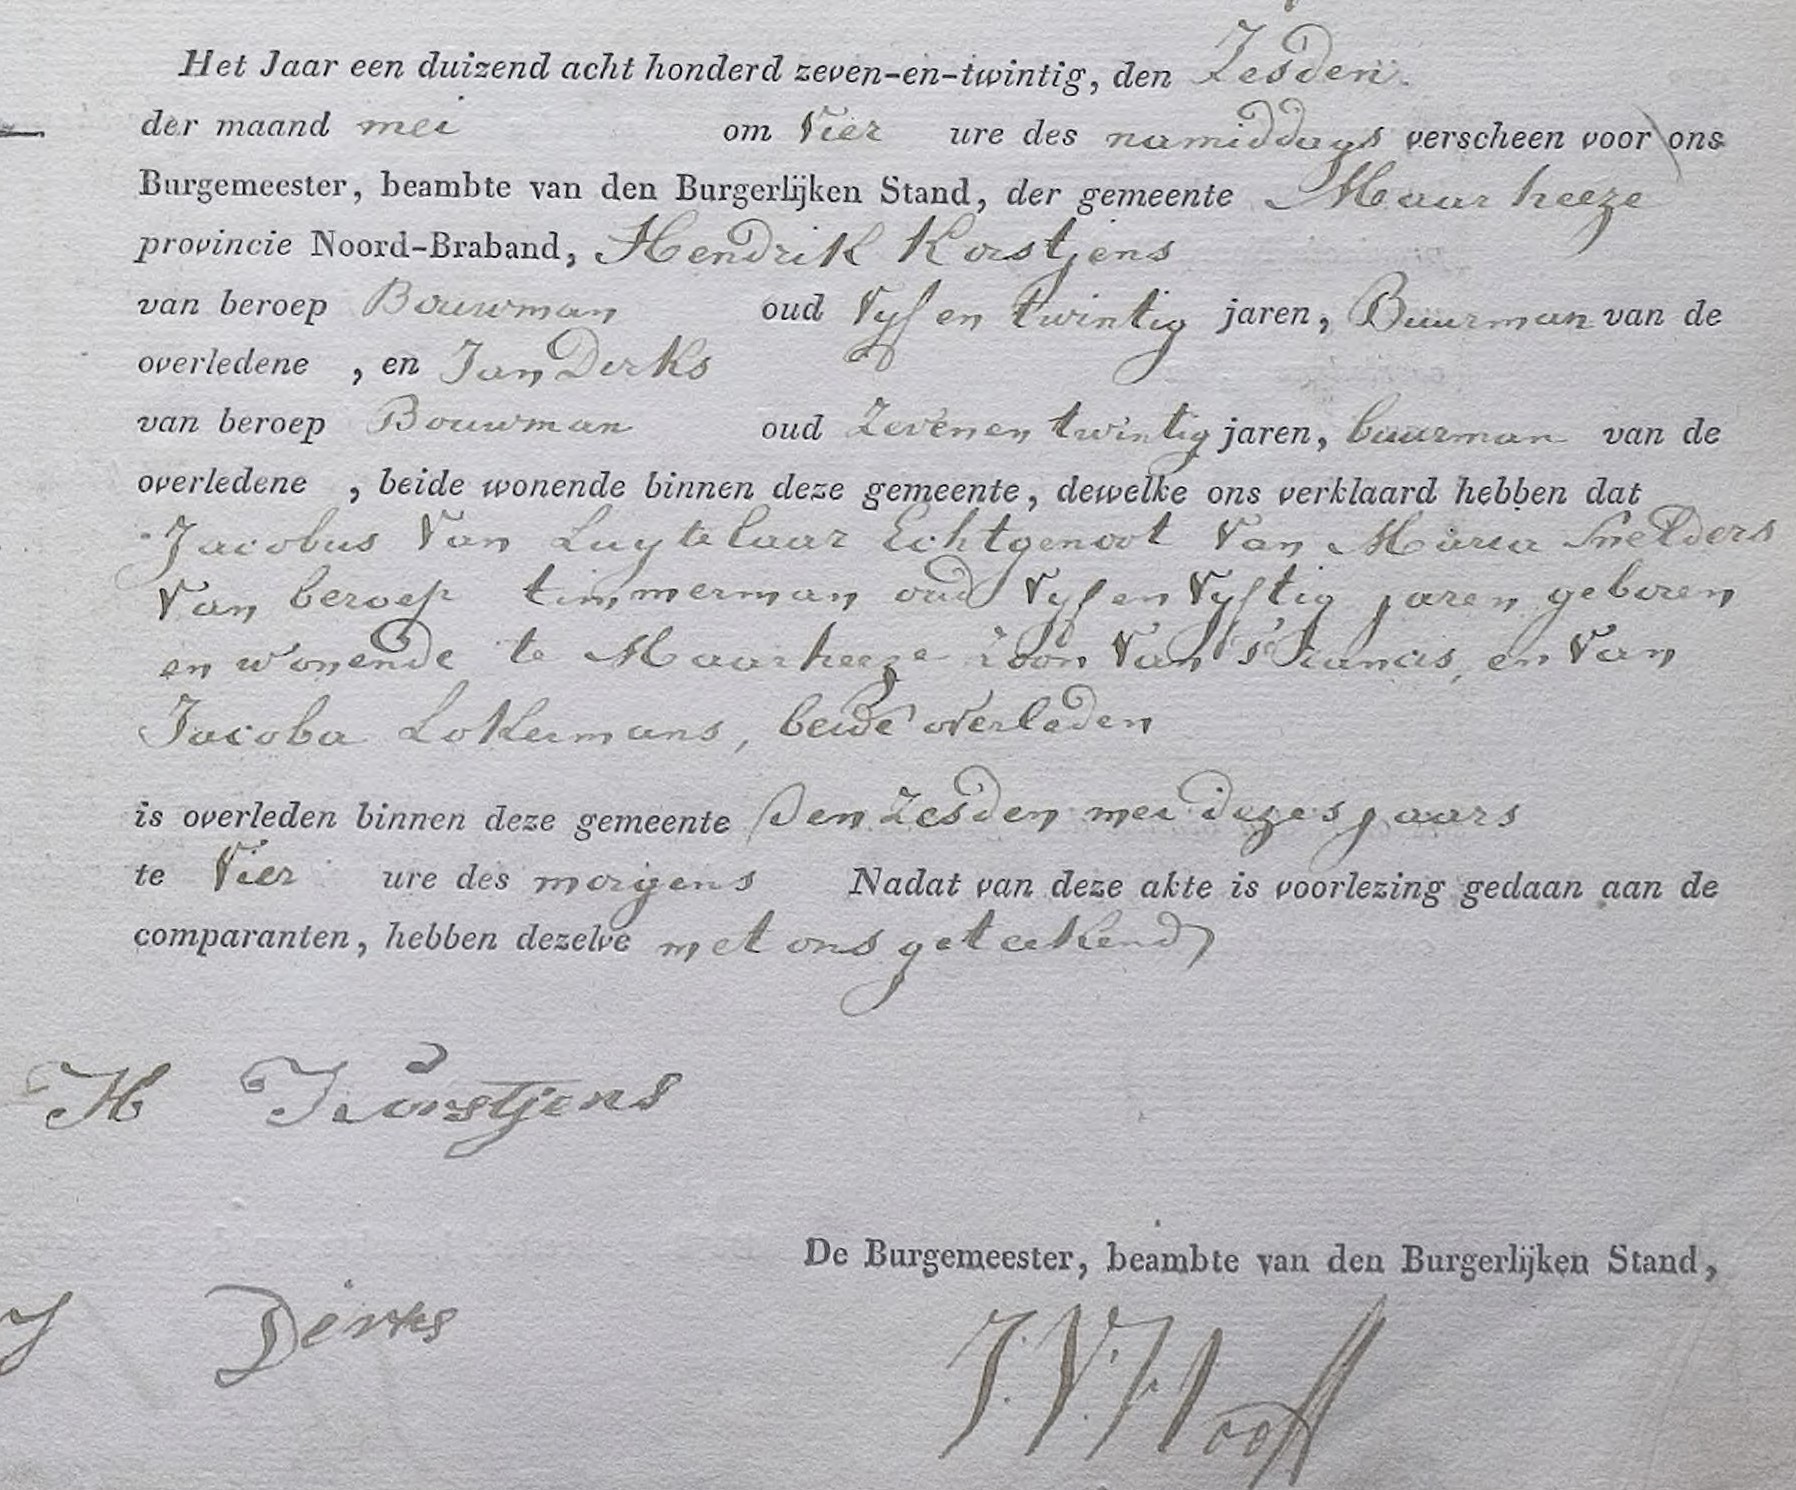 Het Jaar een duizend acht honderd zeven-en-twintig, den Zesden
der maand mei om Vier ure des namiddags verscheen voor ons
Burgemeester, beambte van den Burgerlijken Stand, der gemeente Maarheeze
provincie Noord-Braband, Hendrik Korstjens
van beroep Bouwman oud Vyf en twintig jaren, Buurman van de
overledene , en Jan Derks
van beroep Bouwman oud Zeven en twintig jaren, buurman van de
overledene , beide wonende binnen deze gemeente, dewelke ons verklaard hebben dat
Jacobus Van Luytelaar Echtgenoot Van Maria Snelders
Van beroep timmerman oud Vyf en Vyftig jaren geboren
en wonende te Maarheeze zoon Van Francis, en Van
Jacoba Lokermans, beide overleden
is overleden binnen deze gemeente Den Zesden mei dezes jaars
te Vier ure des morgens Nadat van deze akte is voorlezing gedaan aan de
comparanten, hebben dezelve met ons geteekend
H Korstjens
De Burgemeester, beambte van den Burgerlijken Stand,
J Derks
J. V. Hooff